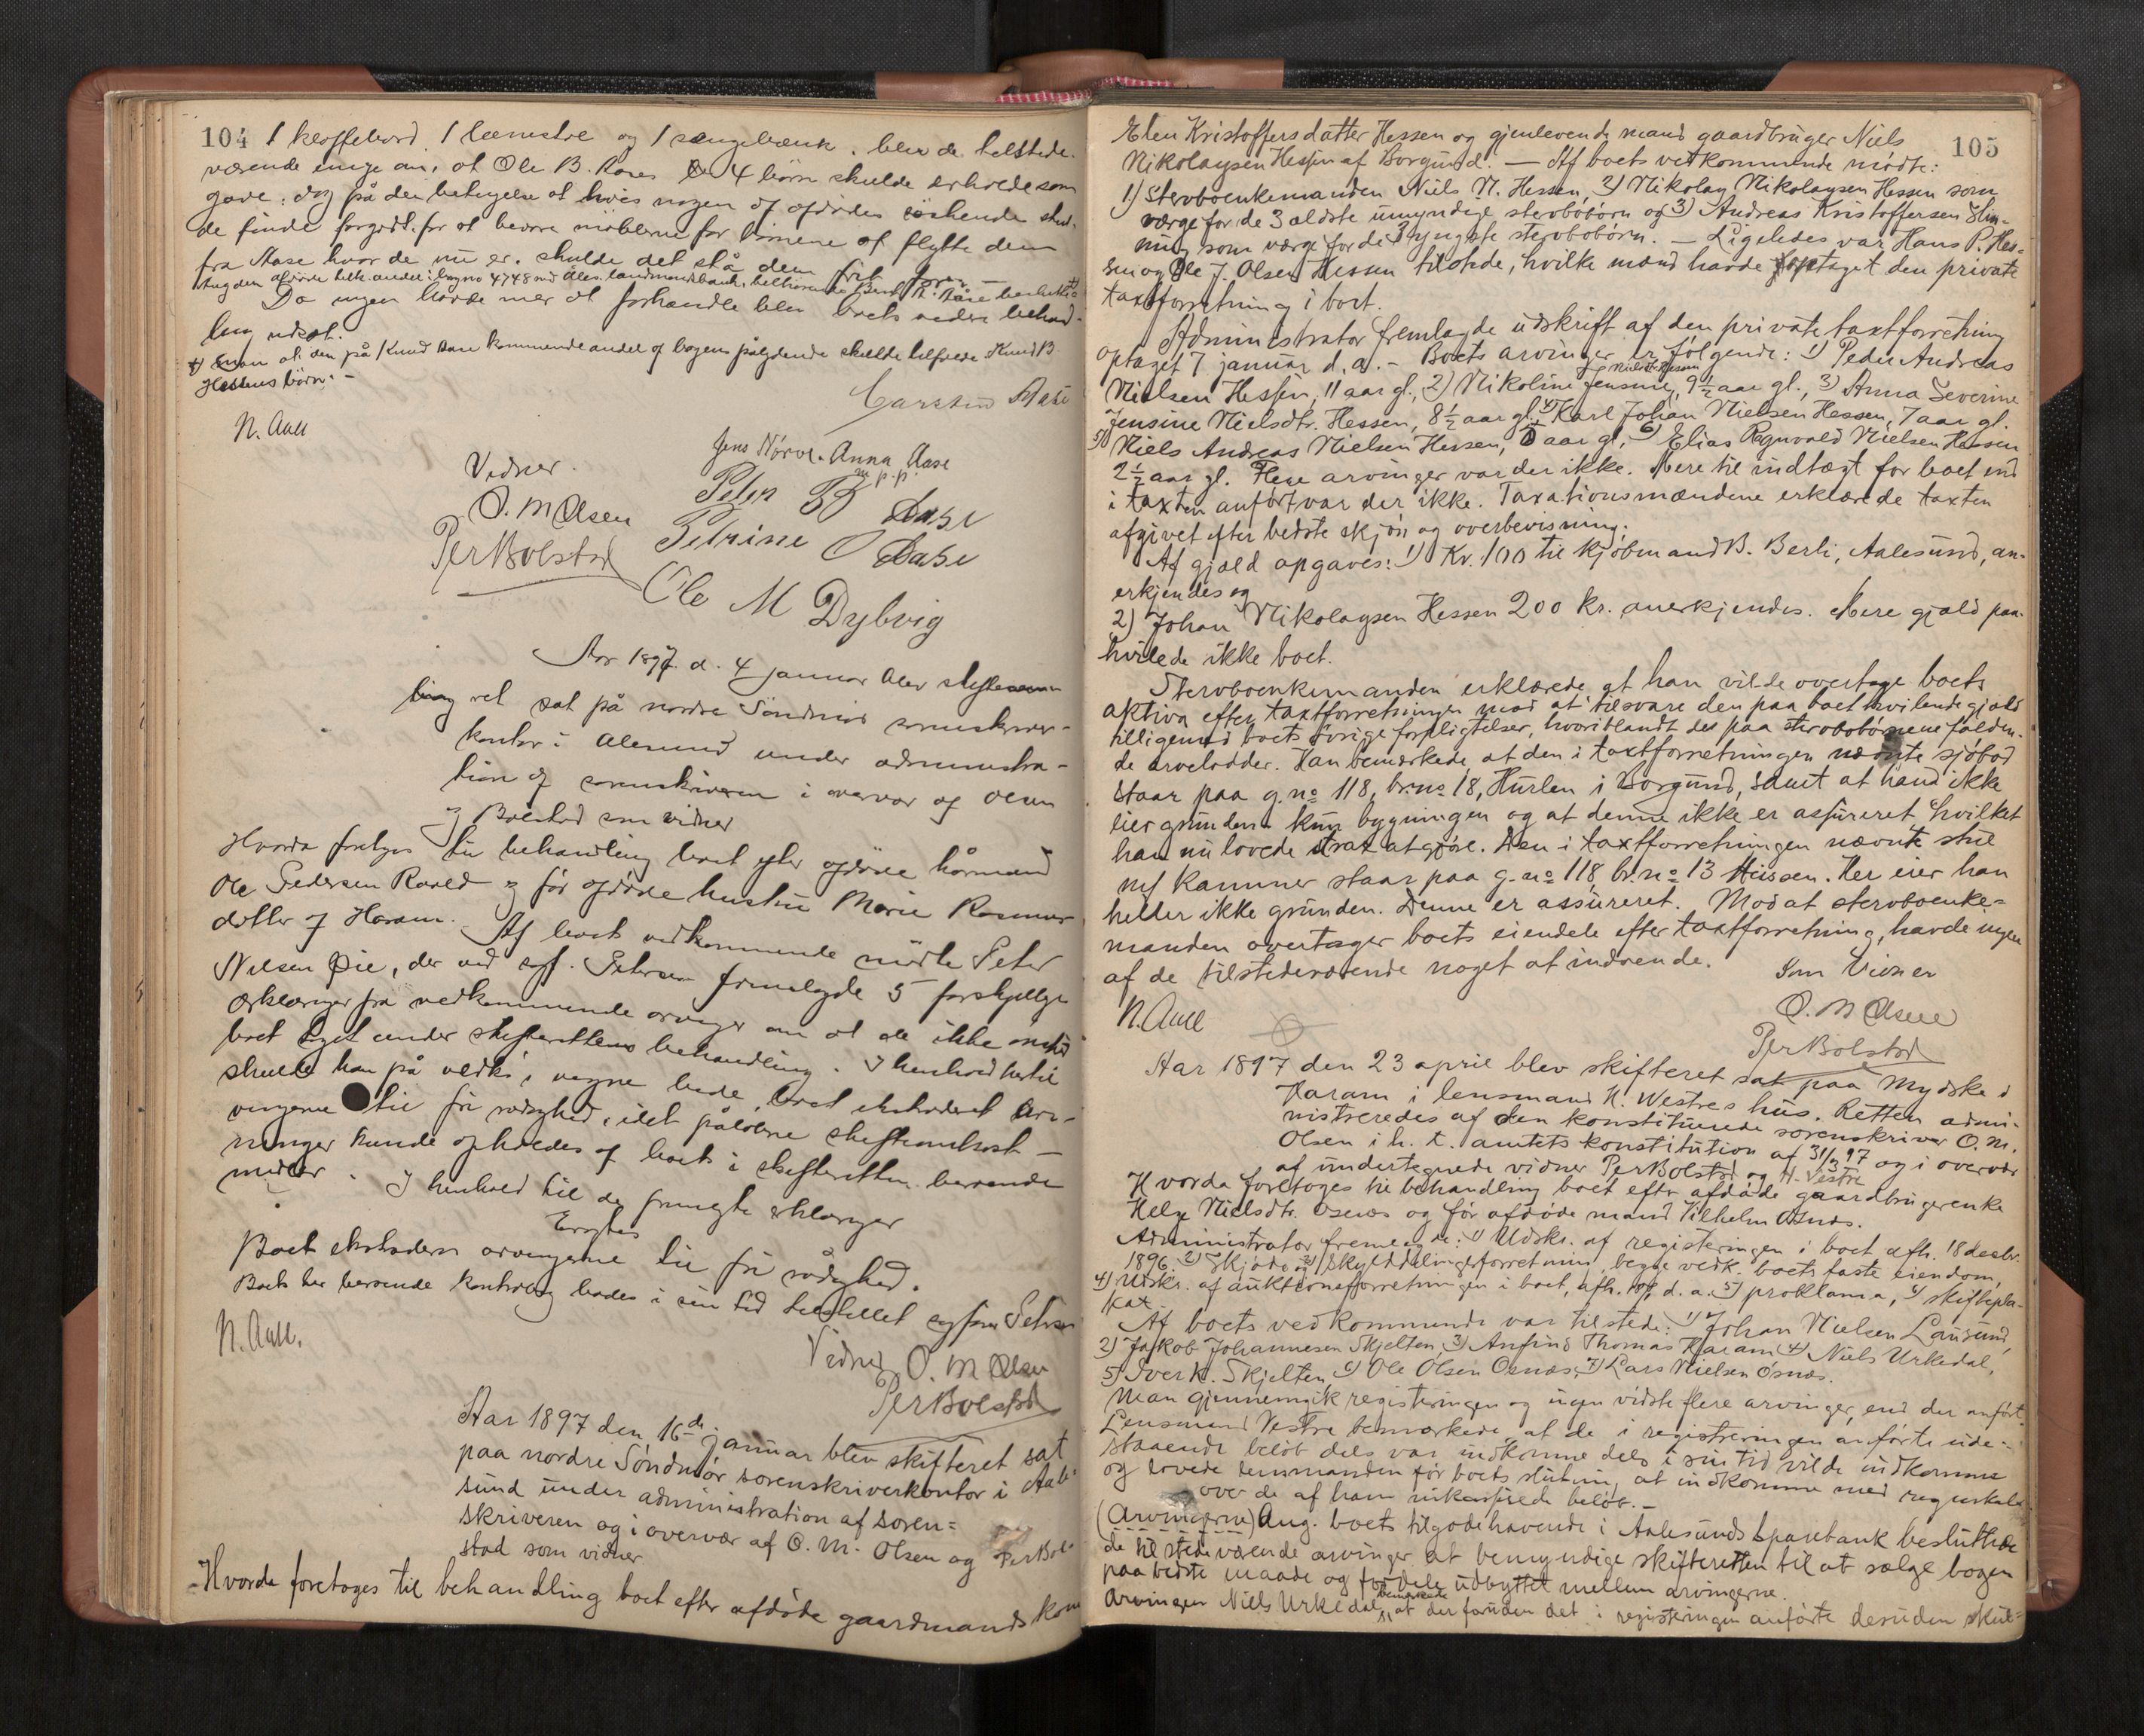 104
1 klaffebord, 1 lænestol og 1 sengebænk, blev de tilstede-
værende enige om, at Ole B. Aases 4 börn skulde erholde som
gave; dog på den betingelse at hvis nogen af afdödes söskende skul-
de finde forgodt for at bevare möblerne for börnene at flytte dem
fra Aase hvor de nu er, skulde det stå dem frit for. —
Ang den afdöde tilh. andel i bog no 4748 ved Ales. landmandsbank, tilhörende Bernt K. Aase besluttes +)
Da ingen havde mer at forhandle blev boets videre behand-
ling udsat.
+) man at den på Knud Aase kommende andel af bogens pålydende skulde tilfalde Knud B.
Hessens börn. –
Carsten Aase
N. Aall
Jens Nørve. Anna Aase
m. p. p.
Vidner.
Peter B Aase
O. M Olsen
Petrine O Aase
Per Bolstad
Ole M Dybvig
Aar 1897 d. 4 januar blev skiftesam-
ling ret sat på nordre Söndmör sorenskriver-
kontor i Alesund under administra-
tion af sorenskriveren i overvær af Olsen
og Bolstad som vidner
Hvorda foretoges til behandling boet efter afdöde hårmand
Ole Pedersen Roald og för afdöde hustru Marie Rasmus-
datter af Haram. Af boets vedkommende mödte Peter
Nilsen Øie, der ved sagf. Petersen fremlagde 5 forskjellige
erklæringer fra vedkommende arvinger om at de ikke önsket
boet taget under skifterettens behandling. I henhold hertil
skulde han på vedk.s vegne bede boet ekstraderet arv-
vingerne til fri rådighed, idet påløbne skifteomkost-
ninger kunde opholdes af boets i skifteretten beroende
midler. I henhold til de fremlagte erklæringer
Eragtes
Boet ekstraderes arvingerne til fri rådighed.
Boets her beroende kontrabog bedes i sin tid tilstillet sagfører Petersen
N. Aall.
Vidner O. M Olsen
Per Bolstad
Aar 1897 den 16de januar blev skifteret sat
paa nordre Söndmör sorenskriverkontor i Aale-
sund under administration af soren-
skriveren og i overvær af O. M. Olsen og Per Bol-
stad som vidner.
Hvorda foretoges til behandling boet efter afdöde gaardmandskone
105
Elen Kristoffersdatter Hessen og gjenlevende mand gaardbruger Niels
Nikolaysen Hessen af Borgund. — Af boets vedkommende mödte:
1) Stervboenkemanden Niels N. Hessen, 2) Nikolay Nikolaysen Hessen som
værge for de 3 ældste umyndige stervbobörn og 3) Andreas Kristoffersen Slin-
ning som værge for de 3 yngste stervbobörn. — Ligeledes var Hans P. Hes-
sen og Ole J. Olsen Hessen tilstede, hvilke mænd havde optaget den private
taxtforretning i boet.
Administrator fremlagde udskrift af den private taxtforretning
optaget 7 januar d. a. – Boets arvinger er følgende: 1) Peder Andreas
Nielsen Hessen, 11 aar gl., 2) Nikoline Jensine Nielsdtr Hessen, 9½ aar gl., 3) Anna Severine
Jensine Nielsdtr. Hessen, 8½ aar gl. 4) Karl Johan Nielsen Hessen, 7 aar gl.
5) Niels Andreas Nielsen Hessen, 5 aar gl., 6) Elias Ragnvald Nielsen Hessen
2½ aar gl. Flere arvinger var der ikke. Mere til indtægt for boet end
i taxten anført var der ikke. Taxationsmændene erklærede taxten
afgivet efter bedste skjön og overbevisning.
Af gjæld opgaves: 1) Kr. 100 til kjöbmand B. Berli, Aalesund, an-
erkjendes og
2) Johan Nikolaysen Hessen 200 kr. anerkjendes. Mere gjæld paa-
hvilede ikke boet.
Stervboenkemanden erklærede at han vilde overtage boets
aktiva efter taxtforretningen mod at tilsvare den paa boet hvilende gjæld
tilligemed boets övrige forpligtelser, hvoriblandt det paa stervbobörnene falden-
de arvelodder. Han bemærkede at den i taxtforretningen nævnte sjöbod
staar paa g. no 118, br. no 18, Hurlen i Borgund, samt at hand ikke
eier grunden kun bygningen og at denne ikke er assureret hvilket
han nu lovede strax at gjöre. Den i taxtforretningen nævnte stue
m/ kammer staar paa g. no 118, br. no 13 Hessen. Her eier han
heller ikke grunden. Denne er assureret. Mod at stervboenke-
manden overtager boets eiendele efter taxtforretning, havde ingen
af de tilstedeværende noget at indvende.
Som Vidner
N. Aall
O. M Olsen
Per Bolstad
Aar 1897 den 23 april blev skifteret sat paa Mydske i
Haram i lensmand H. Westres hus. Retten admi-
nistreredes af den konstituerede sorenskriver O. M.
Olsen i h. t. amtets konstitution af 31/3 97 og i overvær
af undertegnede vidner Per Bolstad og H. Vestre
Hvorda foretoges til behandling boet efter afdöde gaardbrugerenke
Helge Nielsdtr. Osnæs og för afdöde mand Vilhelm Osnæs.
Administrator fremlagde: 1) Udskr. af registeringen i boet afh. 18 decbr.
1896. 2) Skjøde og 3) skylddelingsforretning, begge vedk. boets faste eiendom,
4) Udskr. af auktionsforretningen i boet, afh. d. a. 5) proklama, 6) skiftepla-
kat.
Af boets vedkommende var tilstede: 1) Johan Nielsen Longund,
2) Jakob Johannesen Skjelten, 3) Anfind Thomas Haram 4) Niels Urkedal,
5) Iver K. Skjelten, 6) Ole Olsen Osnæs, 7) Lars Nielsen Osnæs.
Man gjennemgik registeringen og ingen vidste flere arvinger, end der anført.
Lensmand Vestre bemærkede, at de i registreringen anførte ude-
staaende beløb dels var indkomne dels i sin tid vilde indkomme
og lovede lensmanden før boets slutning at indkomme med regnskab
over de af ham inkasserede beløb. –
(Arvingerne) Ang. boets tilgodehavende i Aalesunds sparebank besluttede
de tilstedeværende arvinger at bemyndige skifteretten til at sælge bogen
paa bedste maade og fordele udbyttet mellem arvingerne.
Arvingen Niels Urkedal bemærkede at der foruden det i registeringen anførte desuden skul-